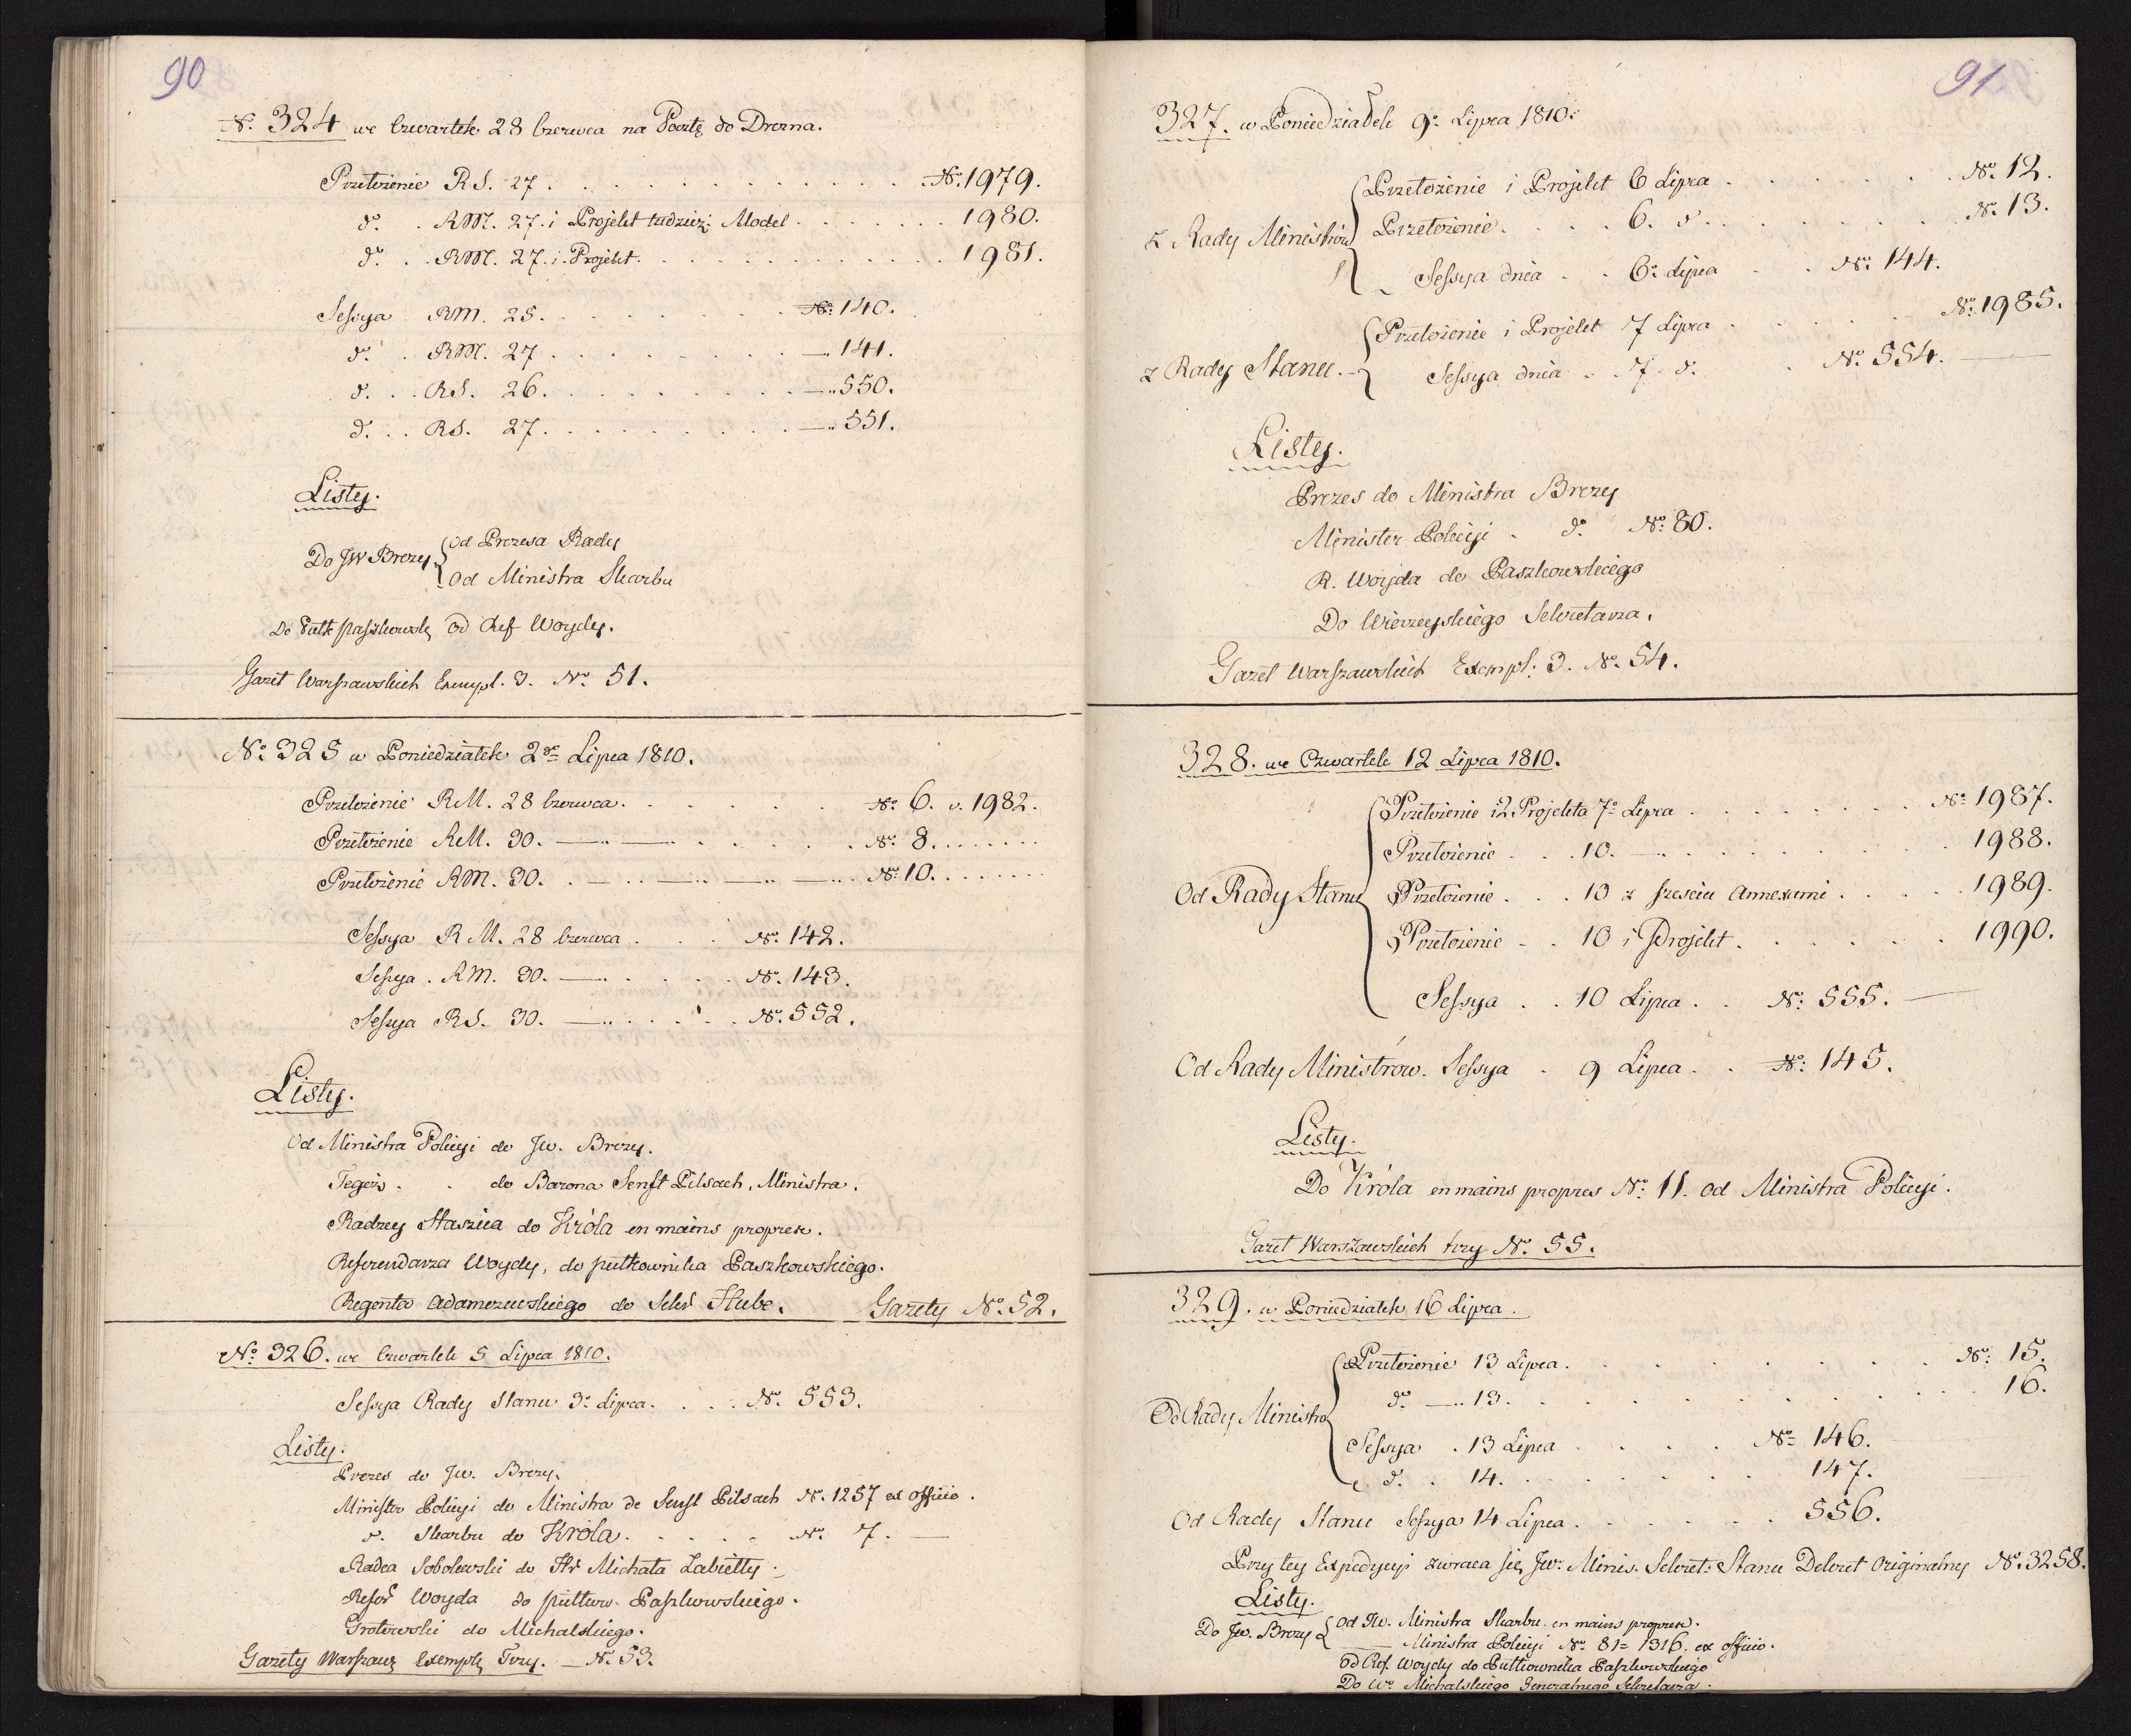 90
No. 324 we Czwartek 28 Czerwca na Pocztę do Drezna.
Przełożenie RS. 27. No. 1979.
do. RM. 27. i Projekt tudzież Model 1980.
do. RM. 27. i Projekt. 1981.
Sessya RM. 25. No. 140.
do. RM. 27 — 141.
do. RS. 26. — 550.
do. RS. 27. — 551.
Listy.
Do JW Brezy
Od Prezesa Rady
Od Ministra Skarbu
Do Pułk Paszkowsk od Ref Woydy.
Gazet Warszawskich Exempl. 3. No. 51.
No. 325 w Poniedziałek 2go Lipca 1810.
Przełożenie RM. 28 Czerwca. No. 6. v. 1982.
Przełożenie RM. 30. — No. 8.
Przełożenie RM. 30. — No. 10.
Sessya RM. 28 Czerwca No. 142.
Sessya RM. 30. — No. 143.
Sessya RS. 30. — No. 552.
Listy.
Od Ministra Policyi do Jw. Brezy.
Tegoż do Barona Senft Pilsach, Ministra.
Radzcy Staszica do Króla en mains propres.
Referendarza Woydy, do pułkownika Paszkowskiego.
Regenta Adamczewskiego do Sekr Hube. Gazety No. 52.
No. 326. we Czwartek 5 Lipca 1810.
Sessya Rady Stanu 3o Lipca. No. 553.
Listy.
Prezes do Jw. Brezy.
Minister Policyi do Ministra de Senft Pilsach No. 1257 ex officio.
do. Skarbu do Króla. No. 7. —
Radca Sobolewski do Hr Michała Zabiełły
Refer Woyda do pułkow. Paszkowskiego.
Grotowski do Michalskiego.
Gazety Warszaw Exempl Trzy. — No. 53.
91.
327. w Poniedziałek 9o Lipca 1810.
z Rady Ministrów
Przełożenie i Projekt 6 Lipca No. 12.
Przełożenie. 6. do. No. 13.
Sessya dnia 6o Lipca No. 144.
z Rady Stanu.
Przełożenie i Projekt 7 Lipca No. 1985.
Sessya dnia 7. do. No. 554. —
Listy.
Prezes do Ministra Brezy
Minister Policyi do. No. 80.
R. Woyda do Paszkowskiego
Do Wierzeyskiego Sekretarza.
Gazet Warszawskich Exempl: 3. No. 54.
328. we Czwartek 12 Lipca 1810.
Od Rady Stanu
Przełożenie i 2. Projekta 7o Lipca No. 1987.
Przełożenie 10. — 1988.
Przełożenie 10 z sześciu Annexami 1989.
Przełożenie 10 i Projekt. 1990.
Sessya 10 Lipca No. 555. —
Od Rady Ministrów. Sessya 9 Lipca No. 145.
Listy.
Do Króla en mains propres No. 11. od Ministra Policyi.
Gazet Warszawskich trzy No. 55.
329. w Poniedziałek 16 Lipca.
Od Rady Ministrów
Przełożenie 13 Lipca. No. 15.
do. — 13. 16.
Sessya 13 Lipca No. 146.
do. 14. 147.
Od Rady Stanu Sessya 14 Lipca. 556.
Przy tey Expedycyi zwraca się Jw. Minis. Sekret. Stanu Dekret Originalny No. 3258.
Listy.
Do Jw. Brezy
Od Jw. Ministra Skarbu en mains propres.
— Ministra Policyi No. 81 = 1316. ex officio.
Od Ref. Woydy do Pułkownika Paszkowskiego
Do Wo Michalskiego Generalnego Sekretarza.